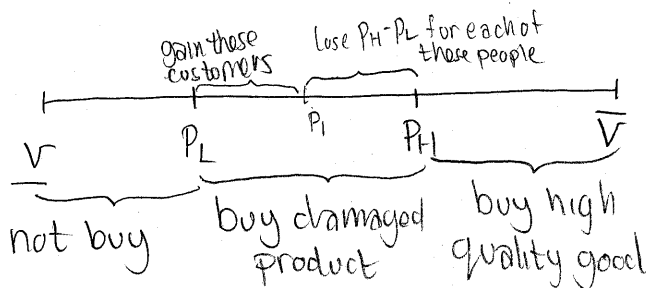 gain these
customers
lose PH-PL for each of
these people
V
PL
P1
PH
V
not buy
buy damaged
product
buy high
quality good